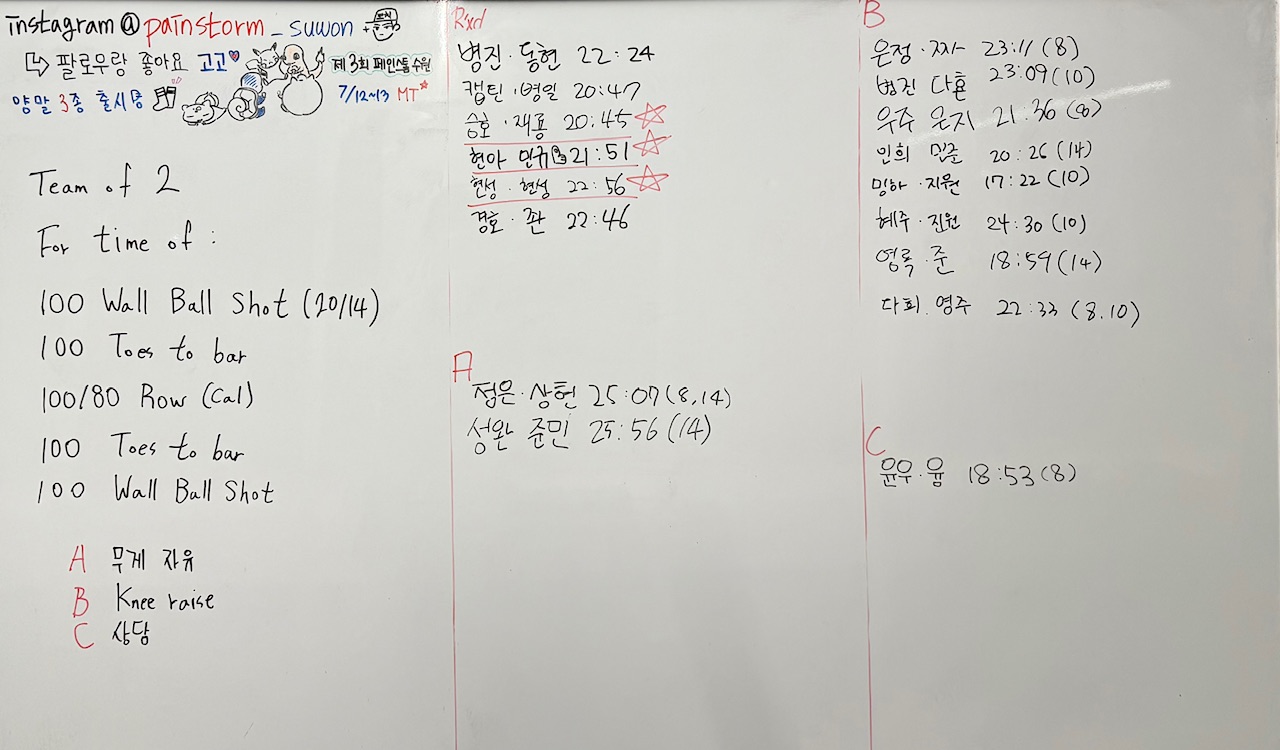 instagram @ painstorm _ suwon +
↳ 팔로우랑 좋아요 고고♥
제 3회 페인스톰 수원
7/12~13 MT☆
양말 3종 출시중
Team of 2
For time of :
100 Wall Ball Shot (20/14)
100 Toes to bar
100/80 Row (Cal)
100 Toes to bar
100 Wall Ball Shot
A 무게 자유
B Knee raise
C 상담
R'xd
병진·동현 22:24
캡틴·병일 20:47
승호·재룡 20:45 ☆
현아 민규 21:51 ☆
현성·현성 22:56 ☆
경호·좐 22:46
A
정은·상헌 25:07 (8,14)
성완 준민 25:56 (14)
B
은정·짜 23:11 (8)
병진 다훈 23:09 (10)
우주 은지 21:36 (8)
인희 20:26 (14)
밍하·지원 17:22 (10)
혜주·진원 24:30 (10)
영록·준 18:59 (14)
다희. 영주 22:33 (8.10)
C
윤우·윰 18:53 (8)